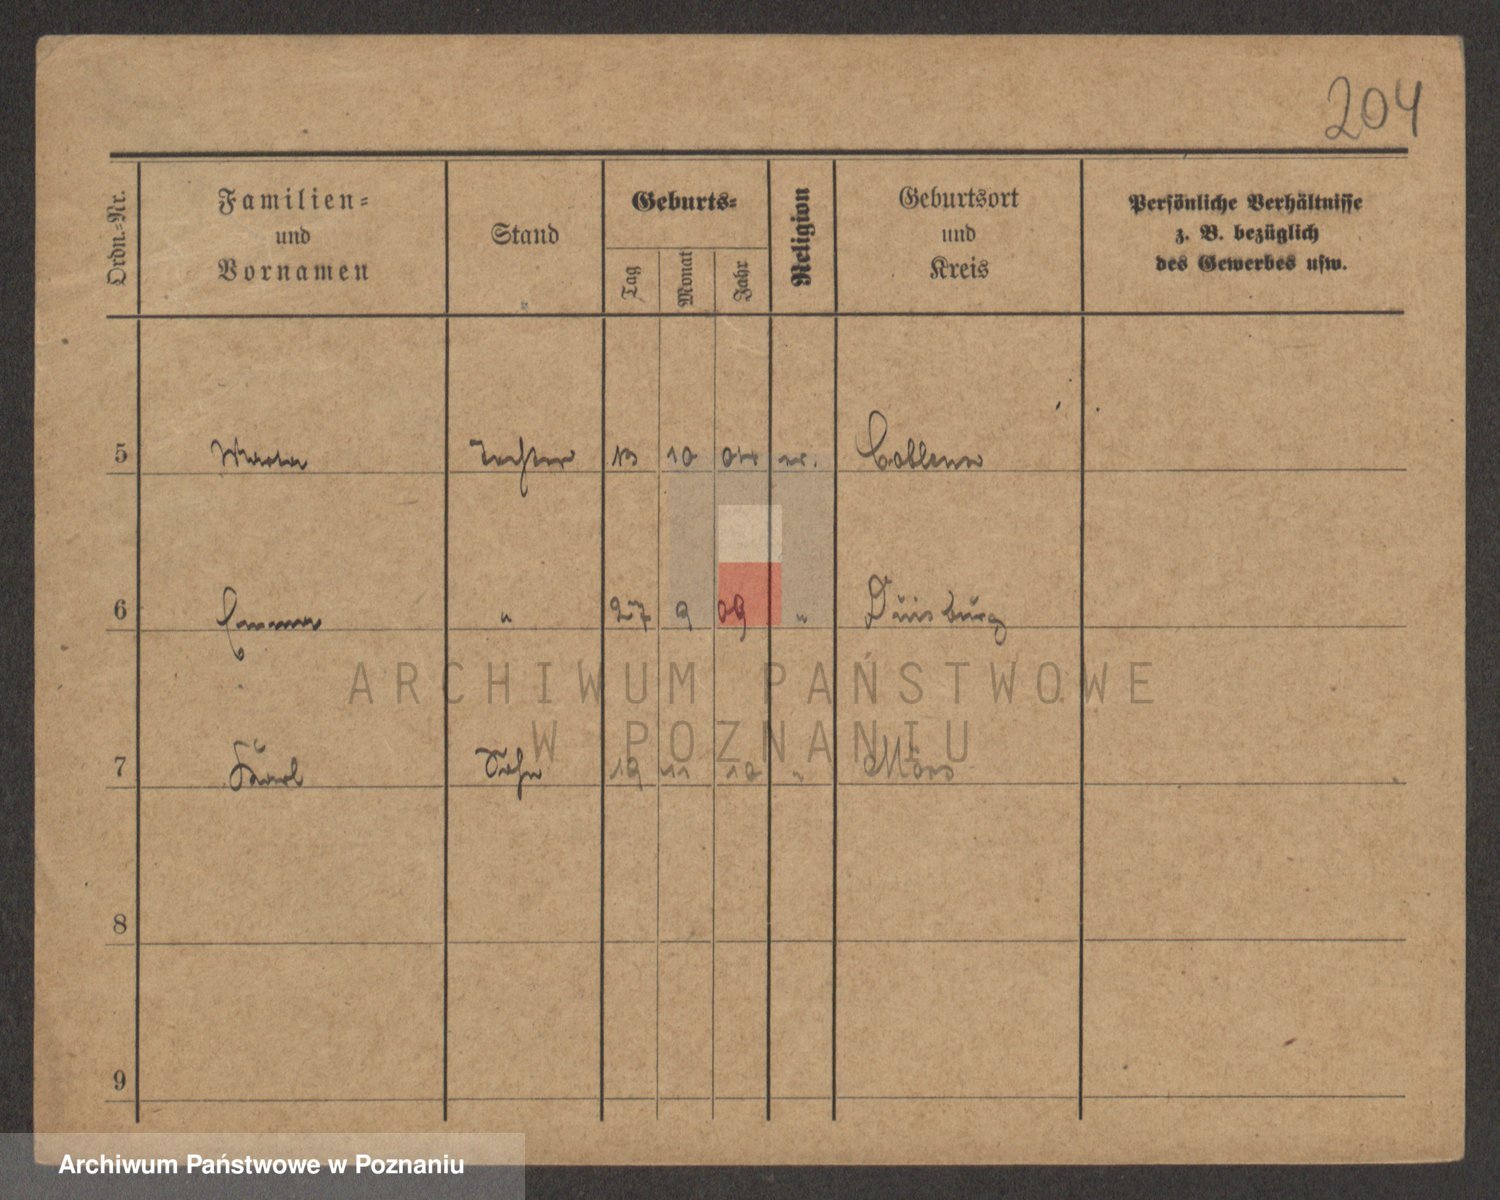 204
Ordn.-Nr.
Familien-
und
Vornamen
Stand
Geburts-
Tag
Monat
Jahr
Religion
Geburtsort
und
Kreis
Persönliche Verhältnisse
z. B. bezüglich
des Gewerbes usw.
5 Tochter 13 10 ev. Coblenz
6 Emma " 27 9 09 " Duisburg
7 Karl Sohn 19 11 10 " Mörs
8
9
ARCHIWUM PAŃSTWOWE
W POZNANIU
Archiwum Państwowe w Poznaniu